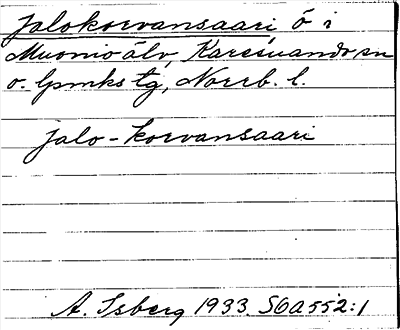 Jalokorvansaari ö i
Muonio älv, Karesuando sn
o. lpmks tg, Norrb. l.
Jalo-korvansaari
A. Isberg 1933 SOA 552:1